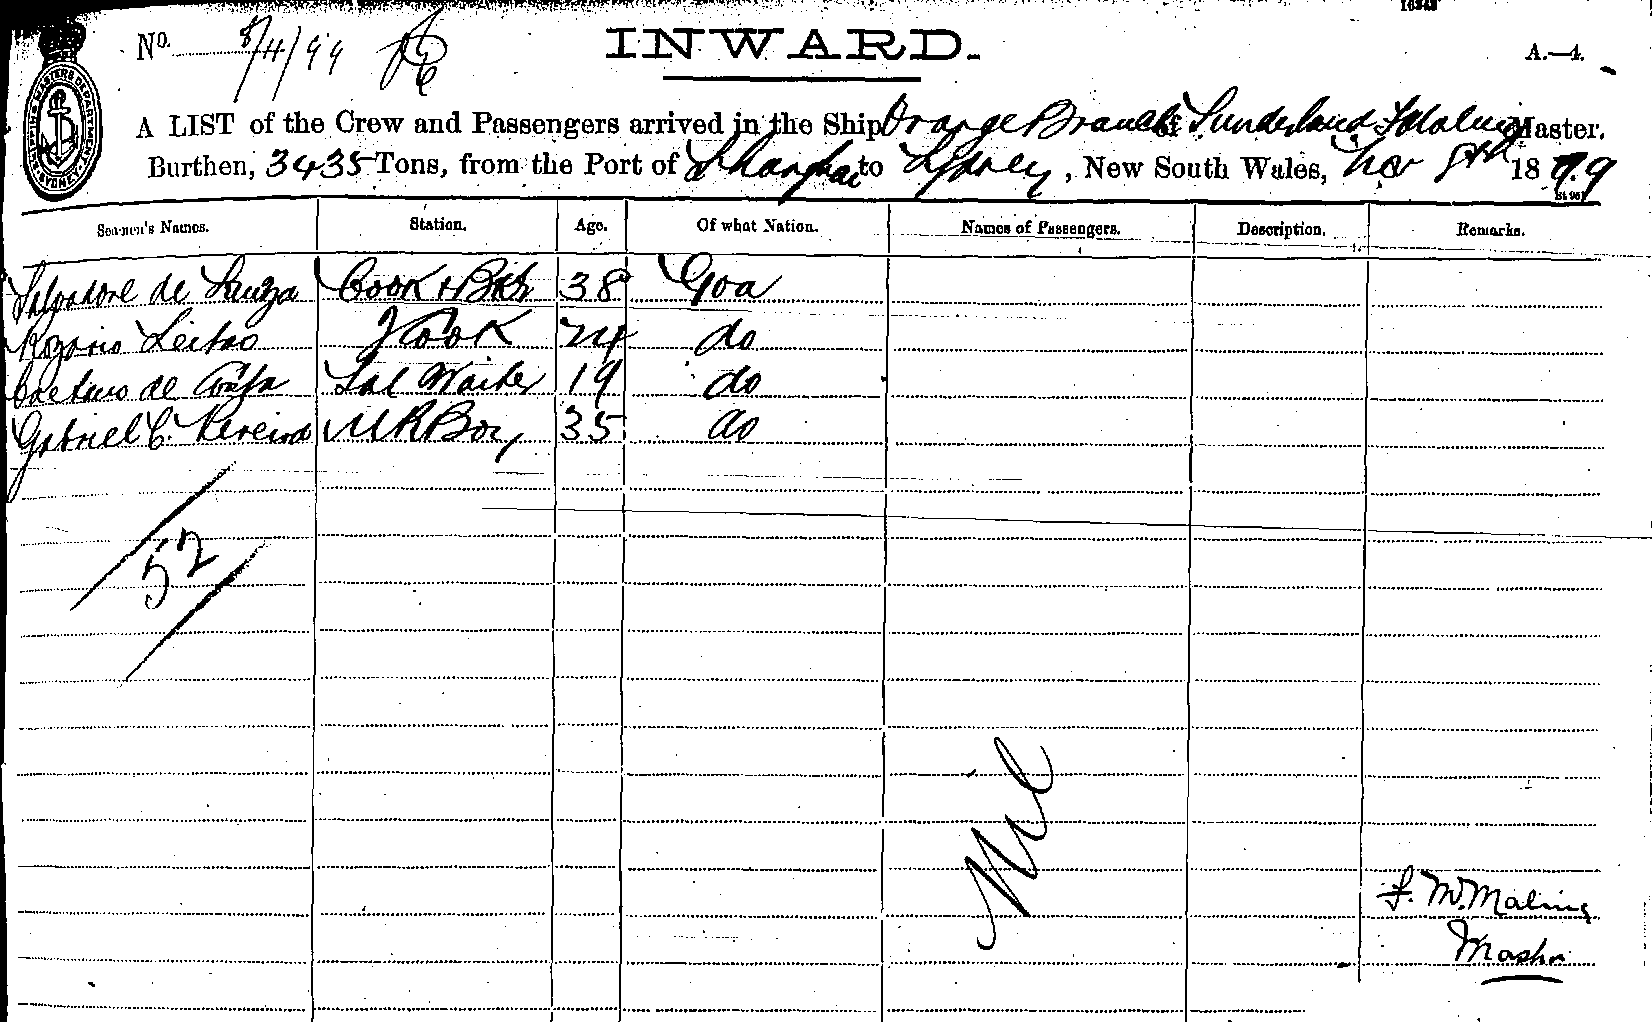 16343
No. 8/4/99
INWARD.
A.—4.
SHIPPING MASTERS DEPARTMENT SYDNEY
A LIST of the Crew and Passengers arrived in the Ship Orange Branch of Sunderland F Maling Master.
Burthen, 3435 Tons, from the Port of Shanghai to Sydney, New South Wales, 8th 1899
Seamen's Names. Station. Age. Of what Nation. Names of Passengers. Description. Remarks.
Salvadore de Souza Cook & Bkr 38 Goa
Rozario Leitao Cook 24 do
Caetano de Costa Sal Waiter 19 do
Gabriel C. Pereira M R Boy 35 do
52
Nil
F. W. Maling
Master